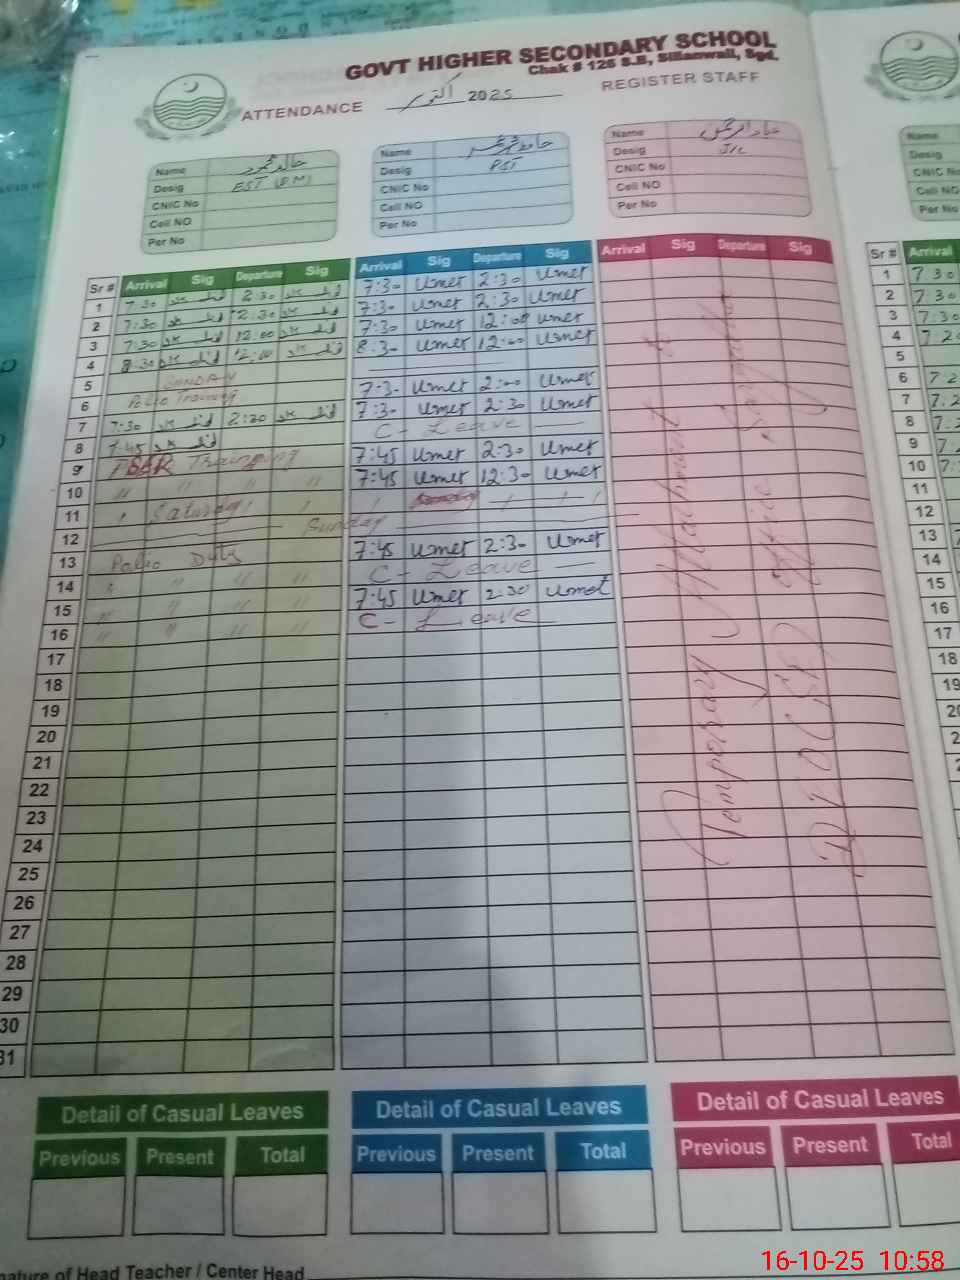 GOVT HIGHER SECONDARY SCHOOL
Chak # 126 S.B, Sillanwali, Sgd.
ATTENDANCE اکتوبر 2025 REGISTER STAFF
Name خالد محمود
Desig EST (P.M)
CNIC No
Cell NO
Per No
Name حافظ محمد عمر
Desig PST
CNIC No
Cell NO
Per No
Name
Desig J/C
CNIC No
Cell NO
Per No
Name
Desig
CNIC No
Cell NO
Per No
Sr # Arrival Sig Departure Sig Arrival Sig Departure Sig Arrival Sig Departure Sig Sr # Arrival
1 7:30 2:30 7:30 Umer 2:30 Umer 1 7 30
2 7:30 2:30 7:30 Umer 2:30 Umer 2 7 30
3 7:30 12:00 7:30 Umer 12:00 Umer 3 7:30
4 8:30 12:00 8:30 Umer 12:00 Umer 4
5 SUNDAY 5
6 Polio Training 7:30 Umer 2:00 Umer 6
7 7:30 2:30 7:30 Umer 2:30 Umer 7
8 7:45 C- Leave 8
9 Training 7:45 Umer 2:30 Umer 9
10 " " " " 7:45 Umer 12:30 Umer 10
11 Saturday 11
12 Sunday 12
13 Polio Duty 7:45 Umer 2:30 Umer 13
14 " " " " C- Leave 14
15 " " " " 7:45 Umer 2:30 Umer 15
16 " " " " C- Leave 16
17 17
18 18
19 19
20
21
22
23
24
25
26
27
28
29
30
31
Temporary Attachment to
Office Sargodha
Detail of Casual Leaves
Previous Present Total
Detail of Casual Leaves
Previous Present Total
Detail of Casual Leaves
Previous Present Total
nature of Head Teacher / Center Head
16-10-25 10:58